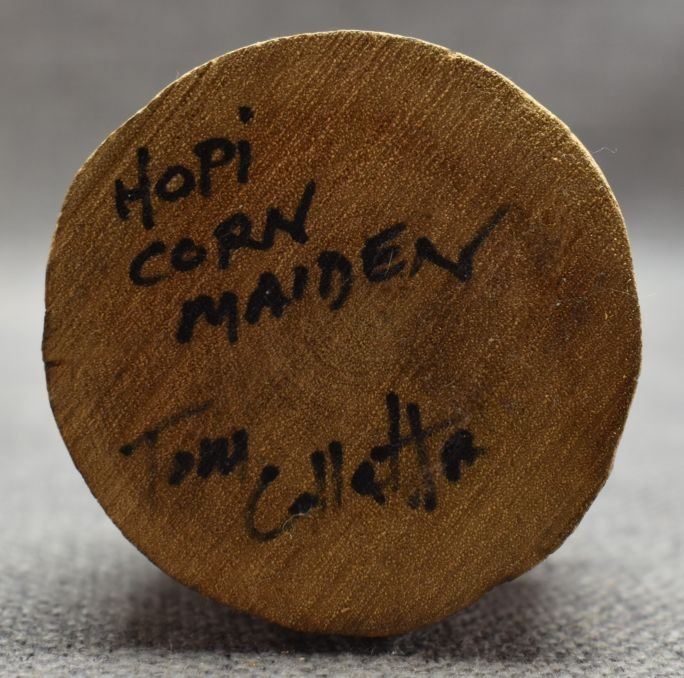 HOPi
CORN
MAIDEN
Tom Collatta